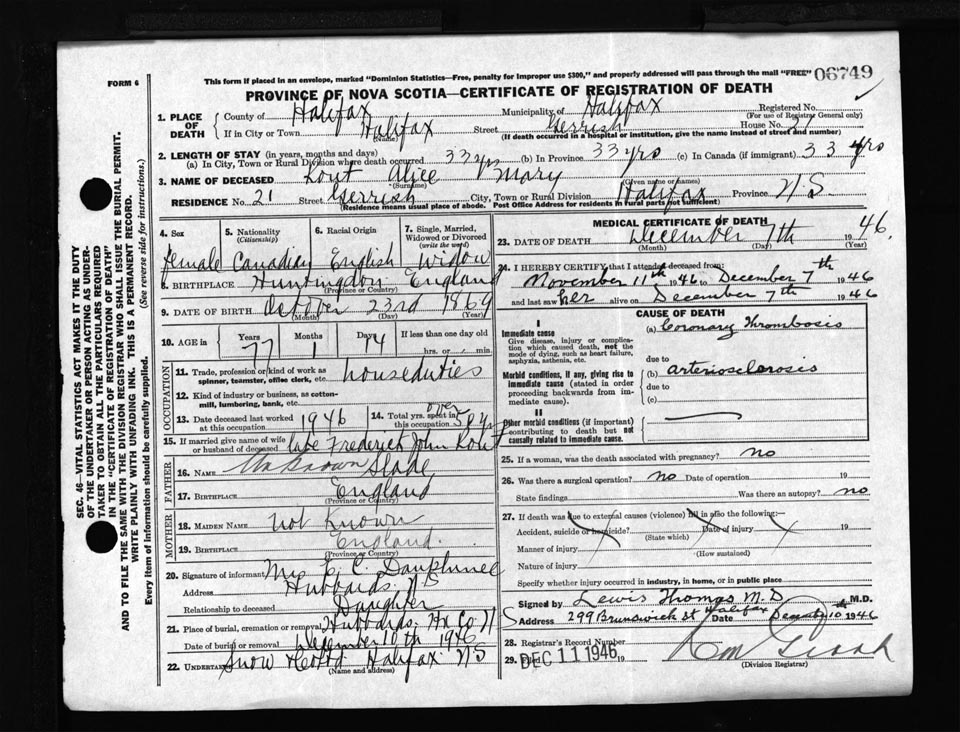 FORM 6
This form if placed in an envelope, marked "Dominion Statistics—Free, penalty for improper use $300," and properly addressed will pass through the mail "FREE"
06749
PROVINCE OF NOVA SCOTIA—CERTIFICATE OF REGISTRATION OF DEATH
1. PLACE OF DEATH
County of Halifax Municipality of Halifax Registered No.
(For use of Registrar General only)
If in City or Town Halifax Street Gerrish House No. 21
(Name)
(If death occurred in a hospital or institution, give the name instead of street and number)
2. LENGTH OF STAY (in years, months and days)
(a) In City, Town or Rural Division where death occurred 33 yrs (b) In Province 33 yrs (c) In Canada (if immigrant) 33 yrs
3. NAME OF DECEASED Rout Alice Mary
(Surname) (Given name or names)
RESIDENCE No. 21 Street Gerrish City, Town or Rural Division Halifax Province N.S.
(Residence means usual place of abode. Post Office Address for residents in rural parts not sufficient)
4. Sex 5. Nationality (Citizenship) 6. Racial Origin 7. Single, Married, Widowed or Divorced (write the word)
female Canadian English Widow
8. BIRTHPLACE Huntingdon England
(Province or Country)
9. DATE OF BIRTH October 23rd 1869
(Month) (Day) (Year)
10. AGE in Years Months Days If less than one day old
77 1 14 hrs. or min.
OCCUPATION
11. Trade, profession or kind of work as spinner, teamster, office clerk, etc. houseduties
12. Kind of industry or business, as cotton-mill, lumbering, bank, etc.
13. Date deceased last worked at this occupation 1946
14. Total yrs. spent in this occupation over 50 yrs
15. If married give name of wife or husband of deceased late Frederick John Rout
FATHER
16. NAME Unknown Slade
17. BIRTHPLACE England
(Province or Country)
MOTHER
18. MAIDEN NAME not Known
19. BIRTHPLACE England.
(Province or Country)
20. Signature of informant Mrs E. C. Dauphinee
Address Hubbards. N.S
Relationship to deceased Daughter
21. Place of burial, cremation or removal Hubbards, Hx Co. N
Date of burial or removal December 10th 1946
22. UNDERTAKER Snow Halifax N.S
(Name and address)
MEDICAL CERTIFICATE OF DEATH
23. DATE OF DEATH December 7th 1946.
(Month) (Day) (Year)
24. I HEREBY CERTIFY that I attended deceased from:
November 11th 1946 to December 7th 1946
and last saw her alive on December 7th 1946
CAUSE OF DEATH
I
Immediate cause
Give disease, injury or complication which caused death, not the mode of dying, such as heart failure, asphyxia, asthenia, etc.
(a) Coronary Thrombosis
due to
Morbid conditions, if any, giving rise to immediate cause (stated in order proceeding backwards from immediate cause).
(b) arteriosclerosis
due to
(c)
II
Other morbid conditions (if important) contributing to death but not causally related to immediate cause.
25. If a woman, was the death associated with pregnancy? no
26. Was there a surgical operation? no Date of operation 19
State findings Was there an autopsy? no
27. If death was due to external causes (violence) fill in also the following:—
Accident, suicide or homicide? Date of injury 19
(State which)
Manner of injury
(How sustained)
Nature of injury
Specify whether injury occurred in industry, in home, or in public place
Signed by Lewis Thomas M.D M.D.
Address 299 Brunswick St Halifax Date December 10th 1946
28. Registrar's Record Number
29. Filed DEC 11 1946 19
(Division Registrar)
SEC. 46—VITAL STATISTICS ACT MAKES IT THE DUTY
OF THE UNDERTAKER OR PERSON ACTING AS UNDERTAKER TO OBTAIN ALL THE PARTICULARS REQUIRED
IN THE "CERTIFICATE OF REGISTRATION OF DEATH"
AND TO FILE THE SAME WITH THE DIVISION REGISTRAR WHO SHALL ISSUE THE BURIAL PERMIT.
WRITE PLAINLY WITH UNFADING INK. THIS IS A PERMANENT RECORD.
Every item of Information should be carefully supplied. (See reverse side for instructions.)